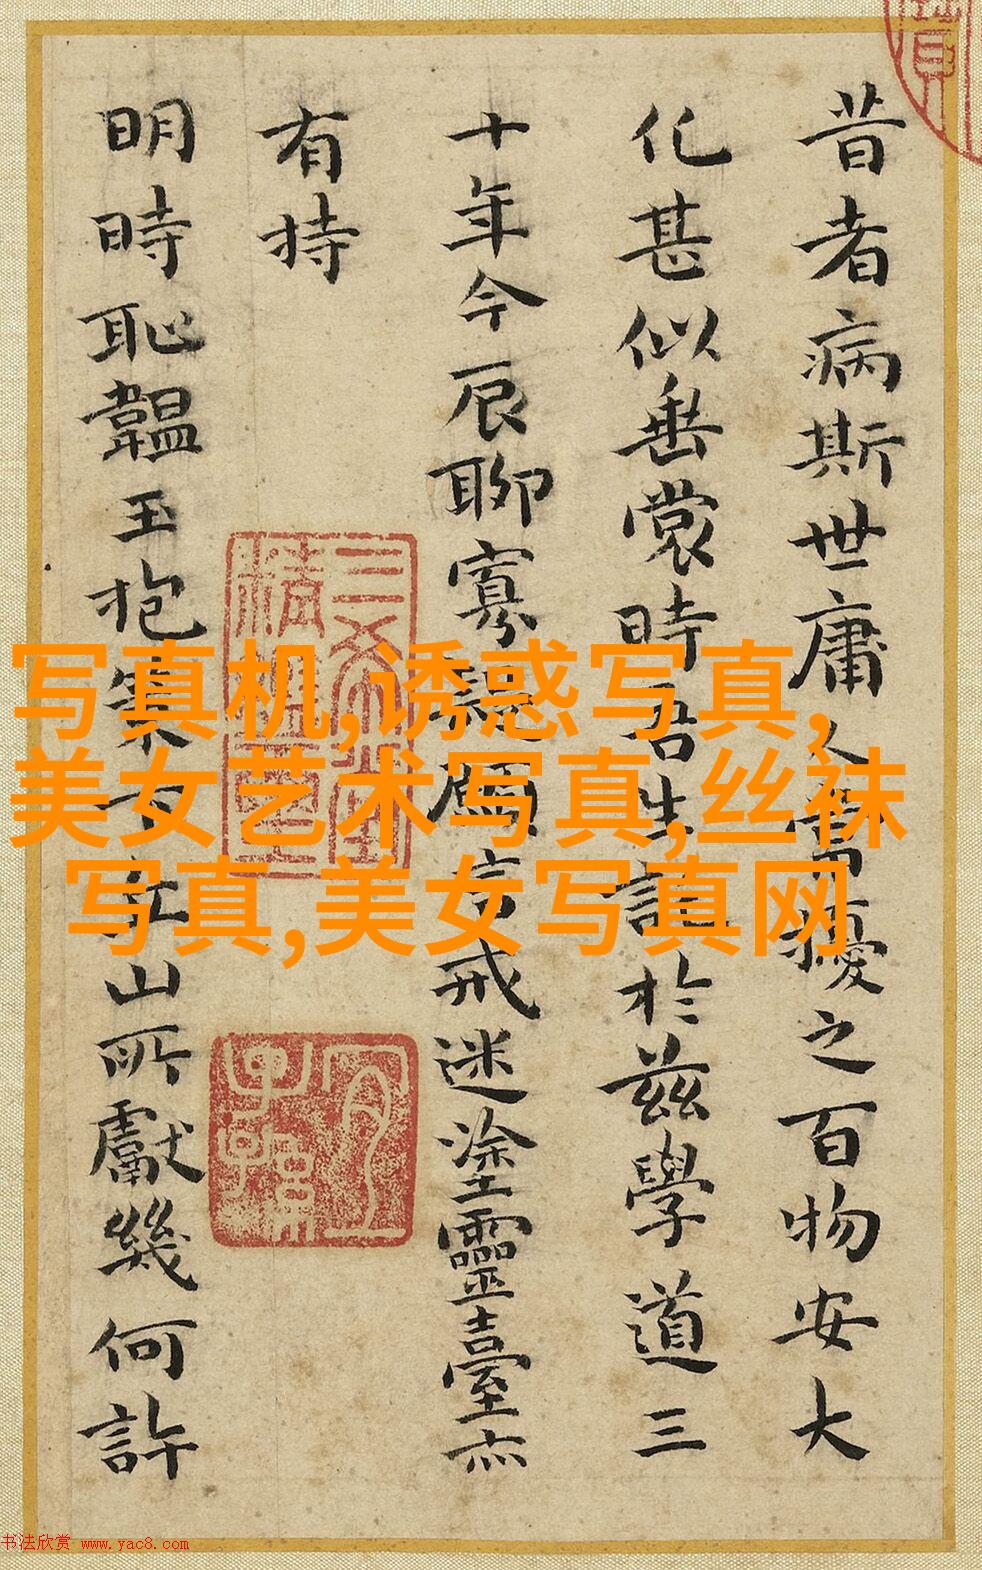 昔者病斯世庸人擾之百物安大
化甚似垂裳時吾生於茲學道三
十年今辰聊寡願言戒迷塗靈臺亦
有持
明時恥韞玉抱山所獻幾何許
三希堂
精鑑璽
宜子孫
写真机,诱惑写真,
美女艺术写真,丝袜
写真,美女写真网
书法欣赏 www.yac8.com